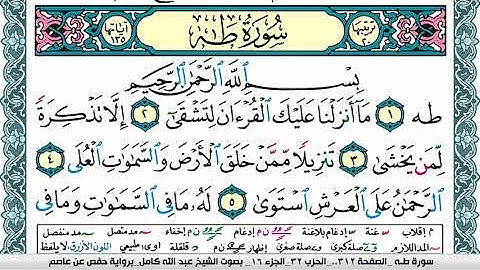 ترتيبها ٢٠ سُورَةُ طه آياتها ١٣٥
بِسْمِ اللَّهِ الرَّحْمَٰنِ الرَّحِيمِ
طه ١ مَا أَنزَلْنَا عَلَيْكَ الْقُرْءَانَ لِتَشْقَىٰ ٢ إِلَّا تَذْكِرَةً
لِّمَن يَخْشَىٰ ٣ تَنزِيلًا مِّمَّنْ خَلَقَ الْأَرْضَ وَالسَّمَٰوَٰتِ الْعُلَى ٤
الرَّحْمَٰنُ عَلَى الْعَرْشِ اسْتَوَىٰ ٥ لَهُ مَا فِي السَّمَٰوَٰتِ وَمَا فِي
م إقلاب غنة إدغام بلاغنة ن م إدغام إخفاء مد متصل مد منفصل
المد اللازم صلة كبرى صلة صغرى إظهار ن م قلقلة اوى طبيعي اللون الأزرق لا يلفظ
سورة طـه _الصفحة ٣١٢.. _الحزب ٣٢_ الجزء ١٦_ بصوت الشيخ عبد الله كامل_ برواية حفص عن عاصم